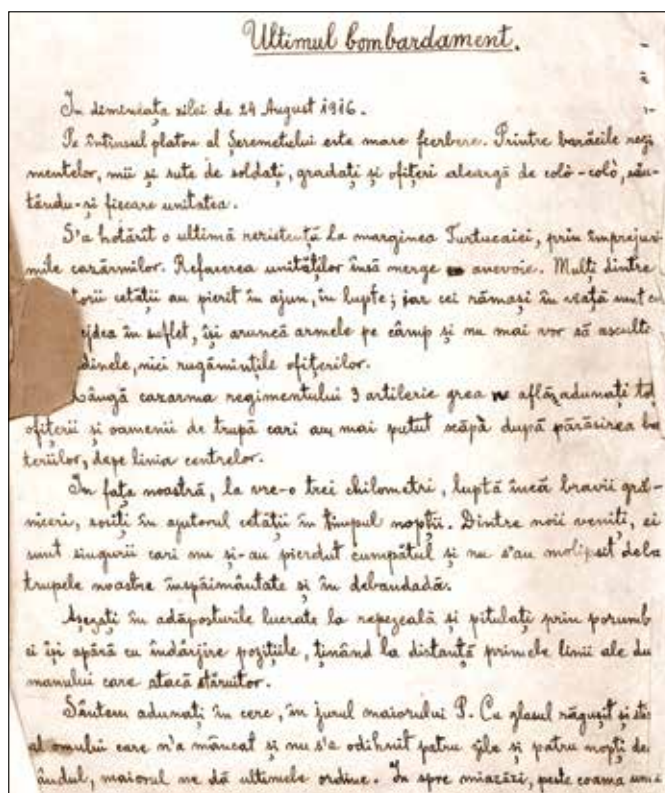 Ultimul bombardament.
In dimineața zilei de 24 August 1916.
Pe întinsul platou al Șeremetului este mare fierbere. Printre barăcile regi
mentelor, mii și sute de soldați, gradați și ofițeri aleargă de colò-colò, cău-
tându-și fiecare unitatea.
S'a hotărît o ultimă rezistență la marginea Turtucaiei, prin împrejuri
mile cazărmilor. Refacerea unităților însă merge anevoie. Mulți dintre
torii cetății au pierit în ajun, în lupte; iar cei rămași în viață sunt cu
ejdea în suflet, își aruncă armele pe câmp și nu mai vor să asculte
dinele, nici rugămințile ofițerilor.
Lângă cazarma regimentului 3 artilerie grea se aflăm adunați toți
ofițerii și oamenii de trupă cari au mai putut scăpà după părăsirea ba
teriilor, depe linia centrelor.
In fața noastră, la vre-o trei chilometri, luptă încă bravii gră-
niceri, sosiți în ajutorul cetății în timpul nopții. Dintre noii veniți, ei
sunt singurii cari nu și-au pierdut cumpătul și nu s'au molipsit dela
trupele noastre înspăimântate și în debandadă.
Așezați în adăposturile lucrate la repezeală și pitulați prin porumb
ei își apără cu îndârjire pozițiile, ținând la distanță primele linii ale du
manului care atacă stăruitor.
Sântem adunați în cerc, în jurul maiorului P. Cu glasul răgușit și stins
al omului care n'a mâncat și nu s'a odihnit patru zile și patru nopți de
ândul, maiorul ne dă ultimele ordine. In spre miazăzi, peste coama unui